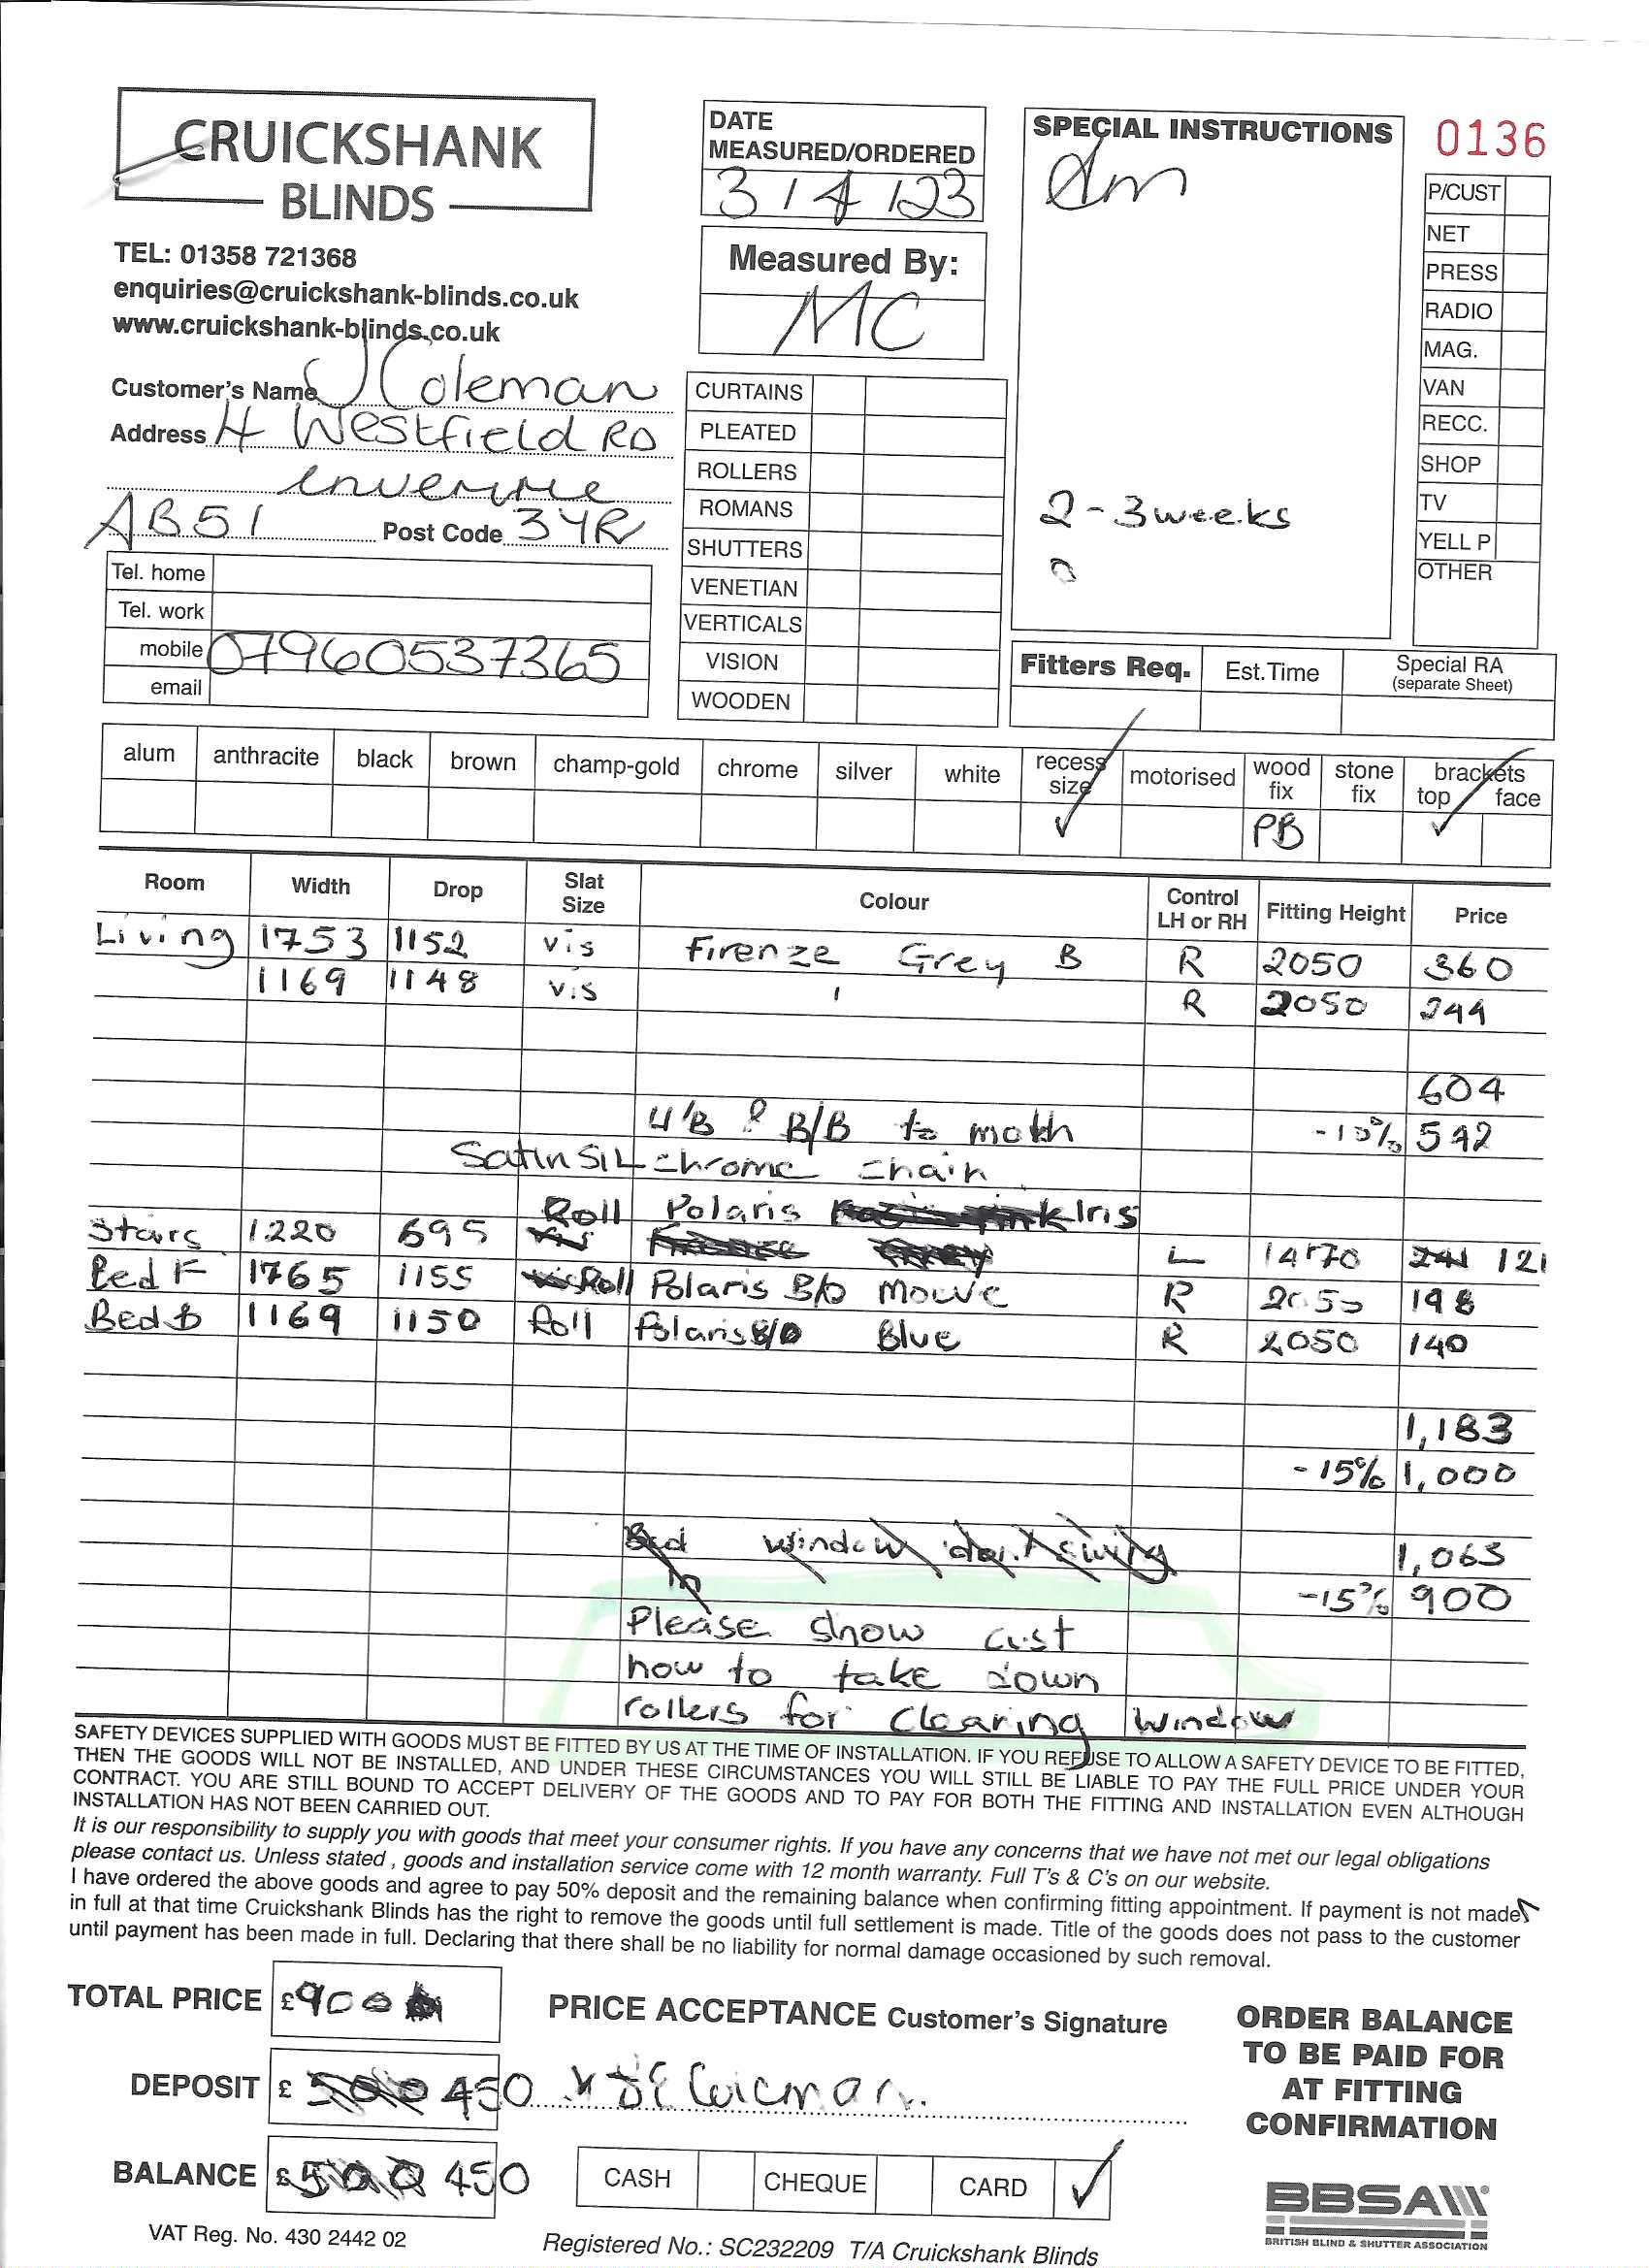 CRUICKSHANK
BLINDS
TEL: 01358 721368
enquiries@cruickshank-blinds.co.uk
www.cruickshank-blinds.co.uk
DATE
MEASURED/ORDERED
3/4/23
Measured By:
MC
SPECIAL INSTRUCTIONS
2-3 weeks
0136
P/CUST
NET
PRESS
RADIO
MAG.
VAN
RECC.
SHOP
TV
YELL P
OTHER
Customer's Name J Coleman
Address 4 Westfield RD
Inverurie
AB51 Post Code 3YR
Tel. home
Tel. work
mobile 07960537365
email
CURTAINS
PLEATED
ROLLERS
ROMANS
SHUTTERS
VENETIAN
VERTICALS
VISION
WOODEN
Fitters Req. Est.Time Special RA
(separate Sheet)
alum anthracite black brown champ-gold chrome silver white recess size motorised wood fix stone fix brackets top face
✓ PB ✓
Room Width Drop Slat Size Colour Control LH or RH Fitting Height Price
Living 1753 1152 vis Firenze Grey B R 2050 360
1169 1148 vis ' R 2050 244
604
U/B & B/B to match -10% 542
Satin SIL chrome chain
Roll Polaris Iris
Stairs 1220 695 L 1470 121
Bed F 1765 1155 Roll Polaris B/O Mouve R 2050 198
Bed B 1169 1150 Roll Polaris B/O Blue R 2050 140
1,183
-15% 1,000
Bed window don't swing 1,063
in -15% 900
Please show cust
how to take down
rollers for cleaning window
SAFETY DEVICES SUPPLIED WITH GOODS MUST BE FITTED BY US AT THE TIME OF INSTALLATION. IF YOU REFUSE TO ALLOW A SAFETY DEVICE TO BE FITTED,
THEN THE GOODS WILL NOT BE INSTALLED, AND UNDER THESE CIRCUMSTANCES YOU WILL STILL BE LIABLE TO PAY THE FULL PRICE UNDER YOUR
CONTRACT. YOU ARE STILL BOUND TO ACCEPT DELIVERY OF THE GOODS AND TO PAY FOR BOTH THE FITTING AND INSTALLATION EVEN ALTHOUGH
INSTALLATION HAS NOT BEEN CARRIED OUT.
It is our responsibility to supply you with goods that meet your consumer rights. If you have any concerns that we have not met our legal obligations
please contact us. Unless stated , goods and installation service come with 12 month warranty. Full T's & C's on our website.
I have ordered the above goods and agree to pay 50% deposit and the remaining balance when confirming fitting appointment. If payment is not made
in full at that time Cruickshank Blinds has the right to remove the goods until full settlement is made. Title of the goods does not pass to the customer
until payment has been made in full. Declaring that there shall be no liability for normal damage occasioned by such removal.
TOTAL PRICE £900
PRICE ACCEPTANCE Customer's Signature
DEPOSIT £ 500 450
BALANCE £500 450
CASH CHEQUE CARD ✓
ORDER BALANCE
TO BE PAID FOR
AT FITTING
CONFIRMATION
BBSA
BRITISH BLIND & SHUTTER ASSOCIATION
VAT Reg. No. 430 2442 02
Registered No.: SC232209 T/A Cruickshank Blinds